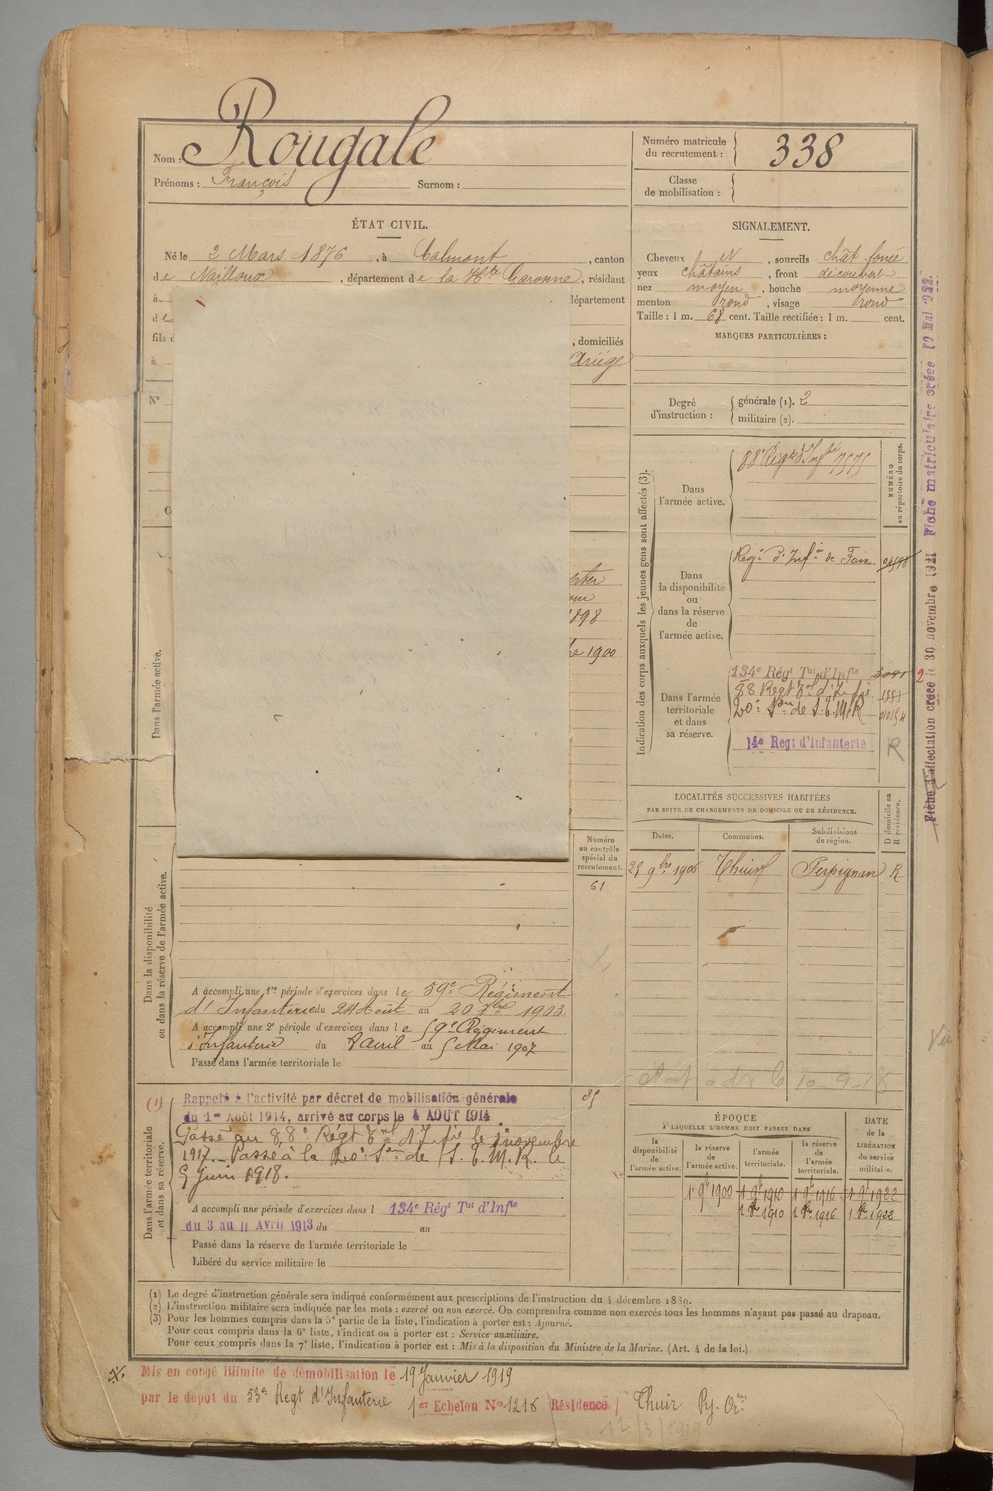 Nom : Rougale
Prénoms : François Surnom :
Numéro matricule du recrutement : 338
Classe de mobilisation :
ÉTAT CIVIL.
Né le 2 Mars 1876, à Calmont, canton
de Nailloux, département de la Hte Garonne, résidant
à département
de
fils d , domiciliés
à Ariège
N°
1898
1900
SIGNALEMENT.
Cheveux N, sourcils chât foncé
yeux châtains, front découvert
nez moyen, bouche moyenne
menton rond, visage rond
Taille : 1 m. 68 cent. Taille rectifiée : 1 m. cent.
MARQUES PARTICULIÈRES :
Degré d'instruction : générale (1). 2
militaire (2).
Indication des corps auxquels les jeunes gens sont affectés (3).
NUMÉRO au répertoire du corps.
Dans l'armée active.
88e Régt d'Infie 7575
Dans la disponibilité ou dans la réserve de l'armée active.
Regt d'Infie de Foix
Dans l'armée territoriale et dans sa réserve.
134e Régt Tal d'Infie
88 Regt Tal d'Infie
20e Son de S.E.M.R
14e Regt d'Infanterie R
Fiche d'affectation créée le 30 novembre 1921 Fiche matriculaire créée 19 Mai 1922
LOCALITÉS SUCCESSIVES HABITÉES
PAR SUITE DE CHANGEMENTS DE DOMICILE OU DE RÉSIDENCE.
Dates. Communes. Subdivisions de région. D domicile ou R résidence.
25 9bre 1906 Thuir Perpignan R
Dans l'armée active.
Numéro au contrôle spécial du recrutement.
61
Dans la disponibilité ou dans la réserve de l'armée active.
A accompli une 1re période d'exercices dans le 59e Régiment
d'Infanterie du 24 Août au 20 7bre 1903
A accompli une 2e période d'exercices dans le 59e Régiment
d'Infanterie du 8 avril au 5 Mai 1907
Passé dans l'armée territoriale le
Dans l'armée territoriale et dans sa réserve.
(1) Rappelé à l'activité par décret de mobilisation générale
du 1er Août 1914, arrivé au corps le 4 AOUT 1914
Passé au 88e Régt Tal d'Infie le 1 novembre
1917. Passé à la 20e Son de S.E.M.R. le
5 Juin 1918.
A accompli une période d'exercices dans l 134e Régt Tal d'Infie
du 3 au 11 Avril 1913 du au
Passé dans la réserve de l'armée territoriale le
Libéré du service militaire le
ÉPOQUE
A LAQUELLE L'HOMME DOIT PASSER DANS
DATE de la LIBÉRATION du service militaire.
la disponibilité de l'armée active. la réserve de l'armée active. l'armée territoriale. la réserve de l'armée territoriale.
1 9e 1900 1 9e 1910 1 9e 1916 1 9e 1922
1 8e 1910 1 8e 1916 1 8e 1922
(1) Le degré d'instruction générale sera indiqué conformément aux prescriptions de l'instruction du 4 décembre 1889.
(2) L'instruction militaire sera indiquée par les mots : exercé ou non exercé. On comprendra comme non exercés tous les hommes n'ayant pas passé au drapeau.
(3) Pour les hommes compris dans la 5e partie de la liste, l'indication à porter est : Ajourné.
Pour ceux compris dans la 6e liste, l'indication à porter est : Service auxiliaire.
Pour ceux compris dans la 7e liste, l'indication à porter est : Mis à la disposition du Ministre de la Marine. (Art. 4 de la loi.)
Mis en congé illimité de démobilisation le 19 Janvier 1919
par le dépôt du 53e Regt d'Infanterie 1er Echelon No 1216 Résidence Thuir Py. Or.les